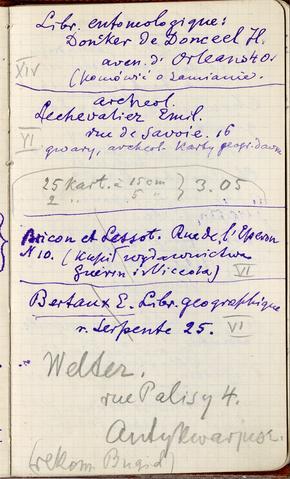 Libr. entomologique:
Donker de Donceel H.
XIV aven. d'Orleans 40.
(Pomówić o zamianie)
archeol.
Lechevalier Emil.
VI rue de Savoie. 16
gwary, archeol. Karty geogr. dawn
25 Kart. à 15 cm } 3.05
2 " 5 "
Bricon et Lessot. Rue de l'Eperon
N 10. (Kupił wydawnictwa
Guérin i Niccota) VI
Bertaux E. Libr. geographique
r. Serpente 25. VI
Welter.
rue Palisy 4.
Antykwarjusz.
(rekom